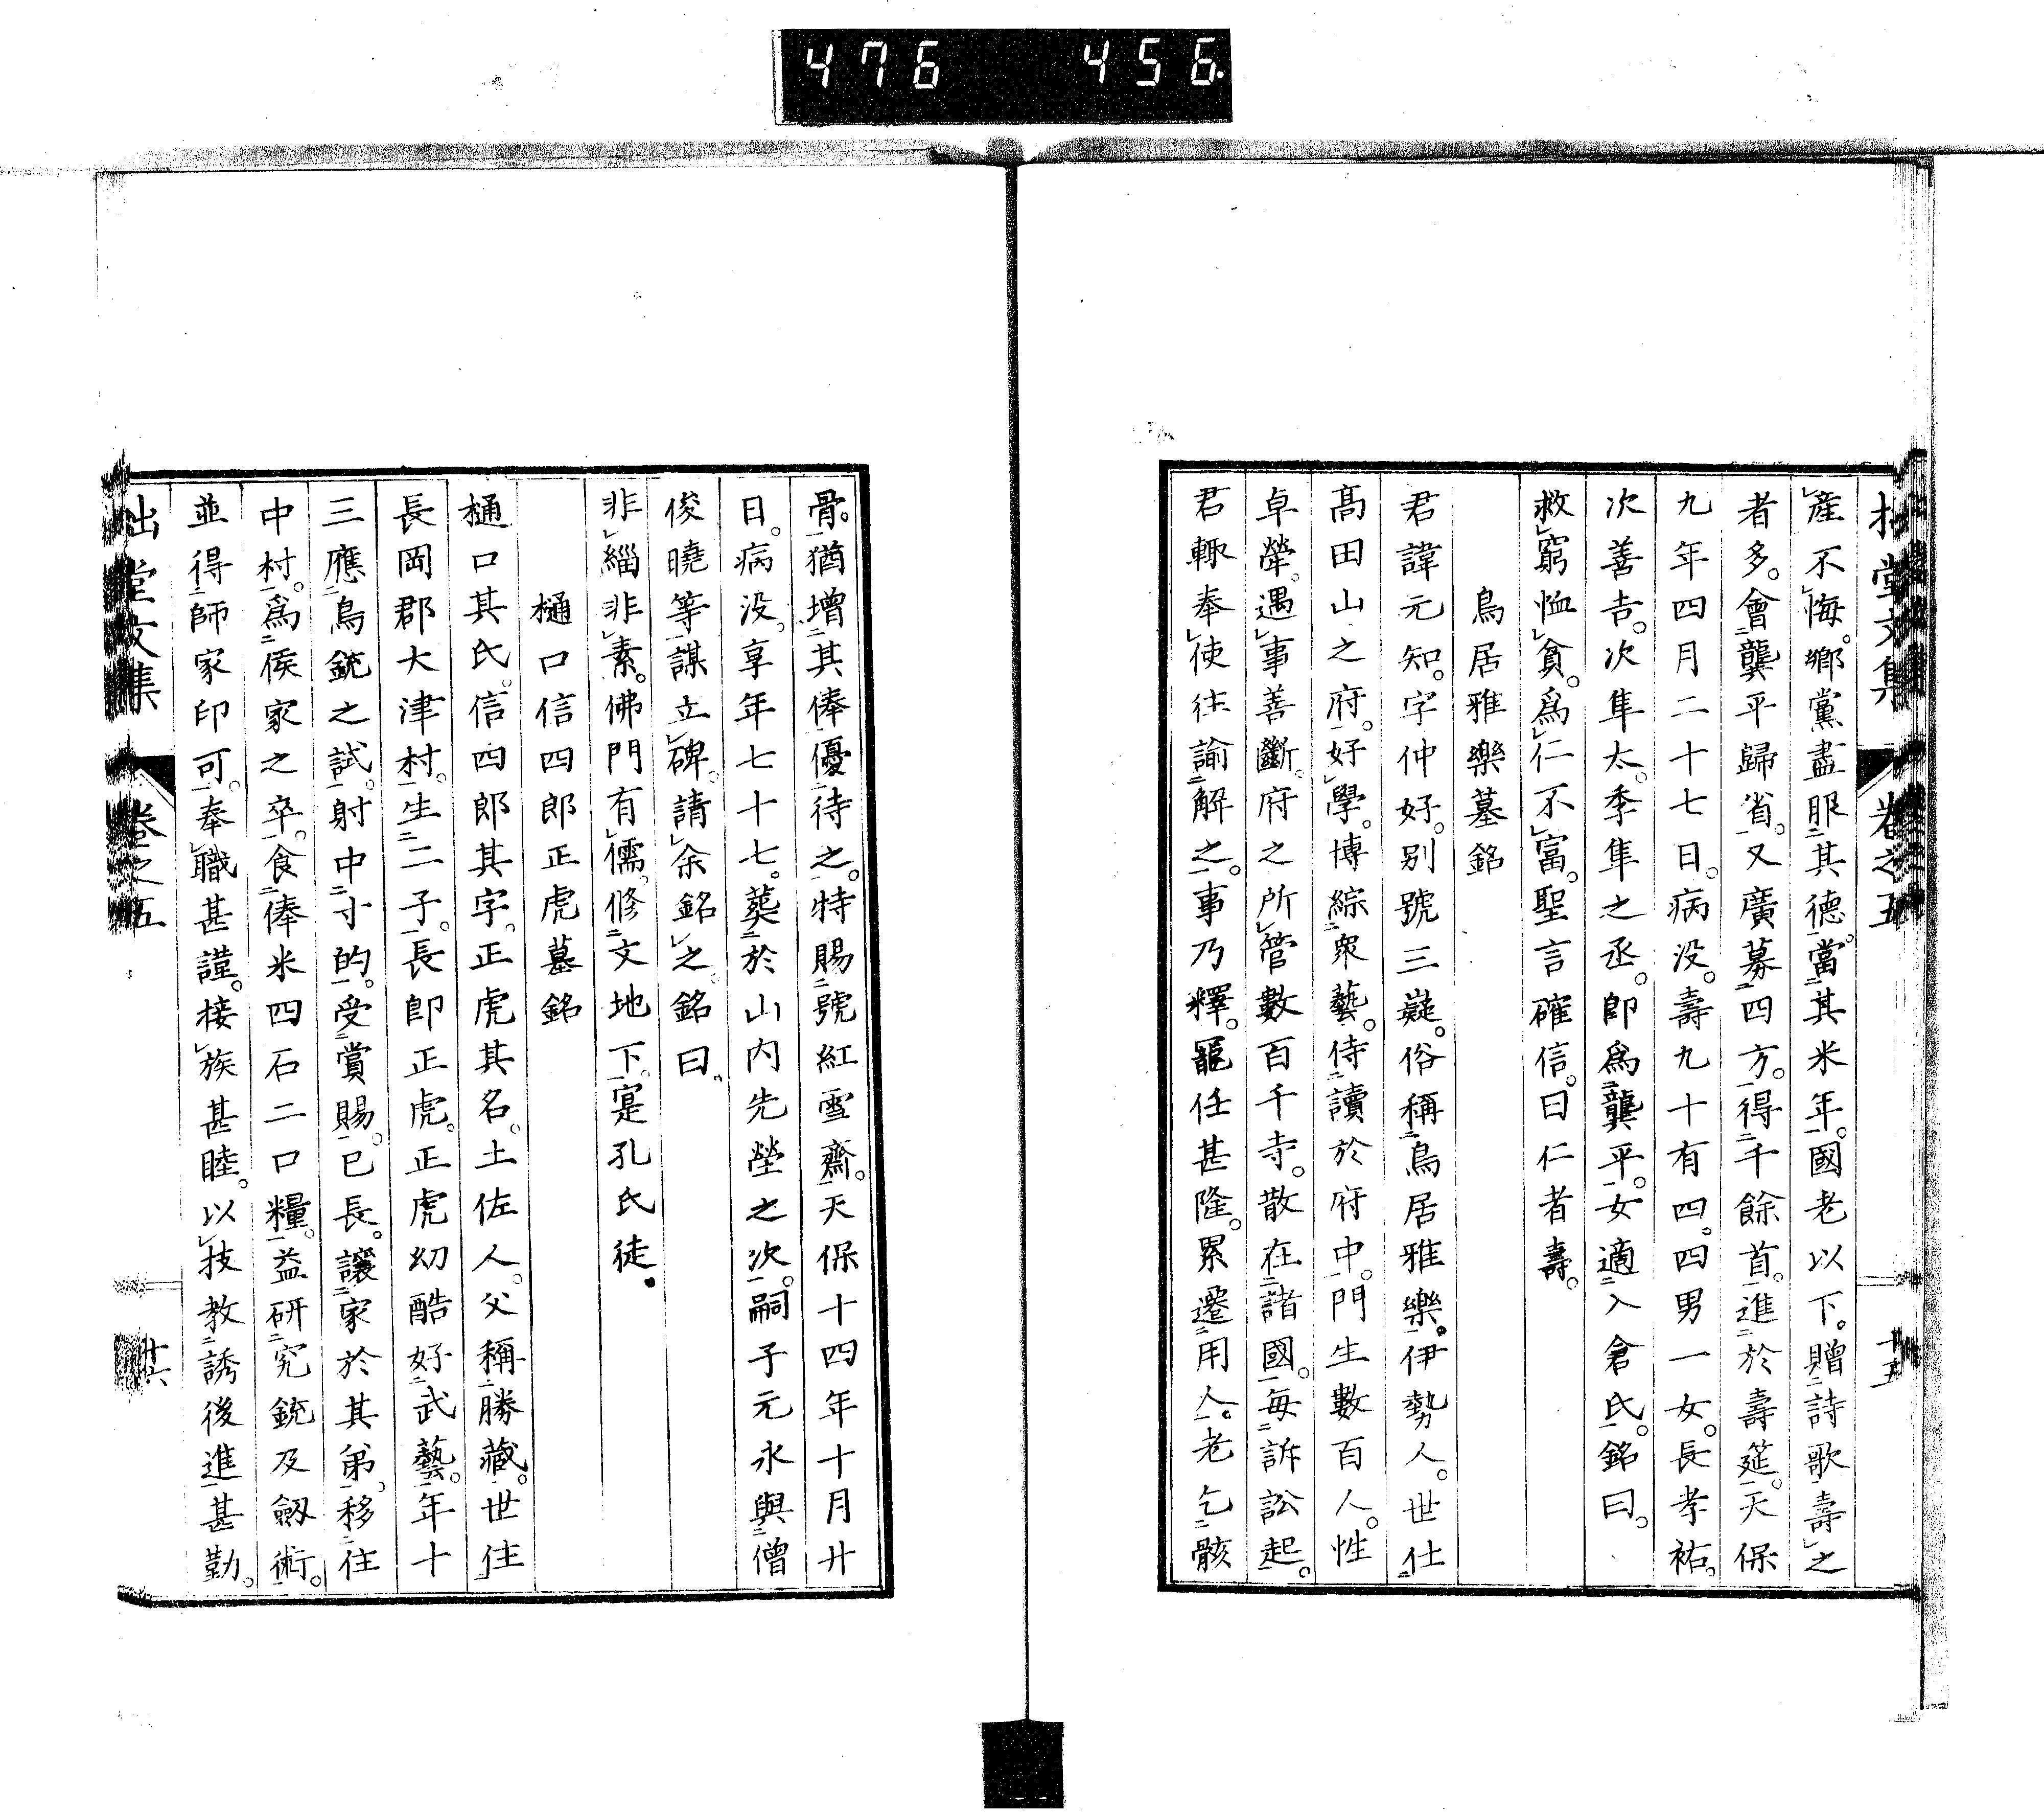 476 456
拙堂文集 卷之五 十五
產不悔。鄉黨盡服其德。當其米年。國老以下。贈詩歌壽之
者多。會龔平歸省。又廣募四方。得千餘首。進於壽筵。天保
九年四月二十七日。病没。壽九十有四。四男一女。長孝祐。
次善吉。次隼太。季隼之丞。卽爲龔平。女適入倉氏。銘曰。
救窮恤貧。爲仁不富。聖言確信。曰仁者壽。
鳥居雅樂墓銘
君諱元知。字仲好。别號三嶷。俗稱鳥居雅樂。伊勢人。世仕
髙田山之府。好學。博綜衆藝。侍讀於府中。門生數百人。性
卓犖。遇事善斷。府之所管數百千寺。散在諸國。每訴訟起。
君輙奉使往諭解之。事乃釋。寵任甚隆。累遷用人。老乞骸
骨。猶增其俸優待之。特賜號紅雪齋。天保十四年十月廿
日。病没。享年七十七。葬於山内先塋之次。嗣子元永與僧
俊曉等謀立碑。請余銘之。銘曰。
非緇非素。佛門有儒。修文地下。寔孔氏徒。
樋口信四郎正虎墓銘
樋口其氏。信四郎其字。正虎其名。土佐人。父稱勝藏。世住
長岡郡大津村。生二子。長卽正虎。正虎幼酷好武藝。年十
三應鳥銃之試。射中寸的。受賞賜。已長。讓家於其弟。移住
中村。爲侯家之卒。食俸米四石二口糧。益研究銃及劔術。
並得師家印可。奉職甚謹。接族甚睦。以技教誘後進甚勤。
拙堂文集 卷之五 十六